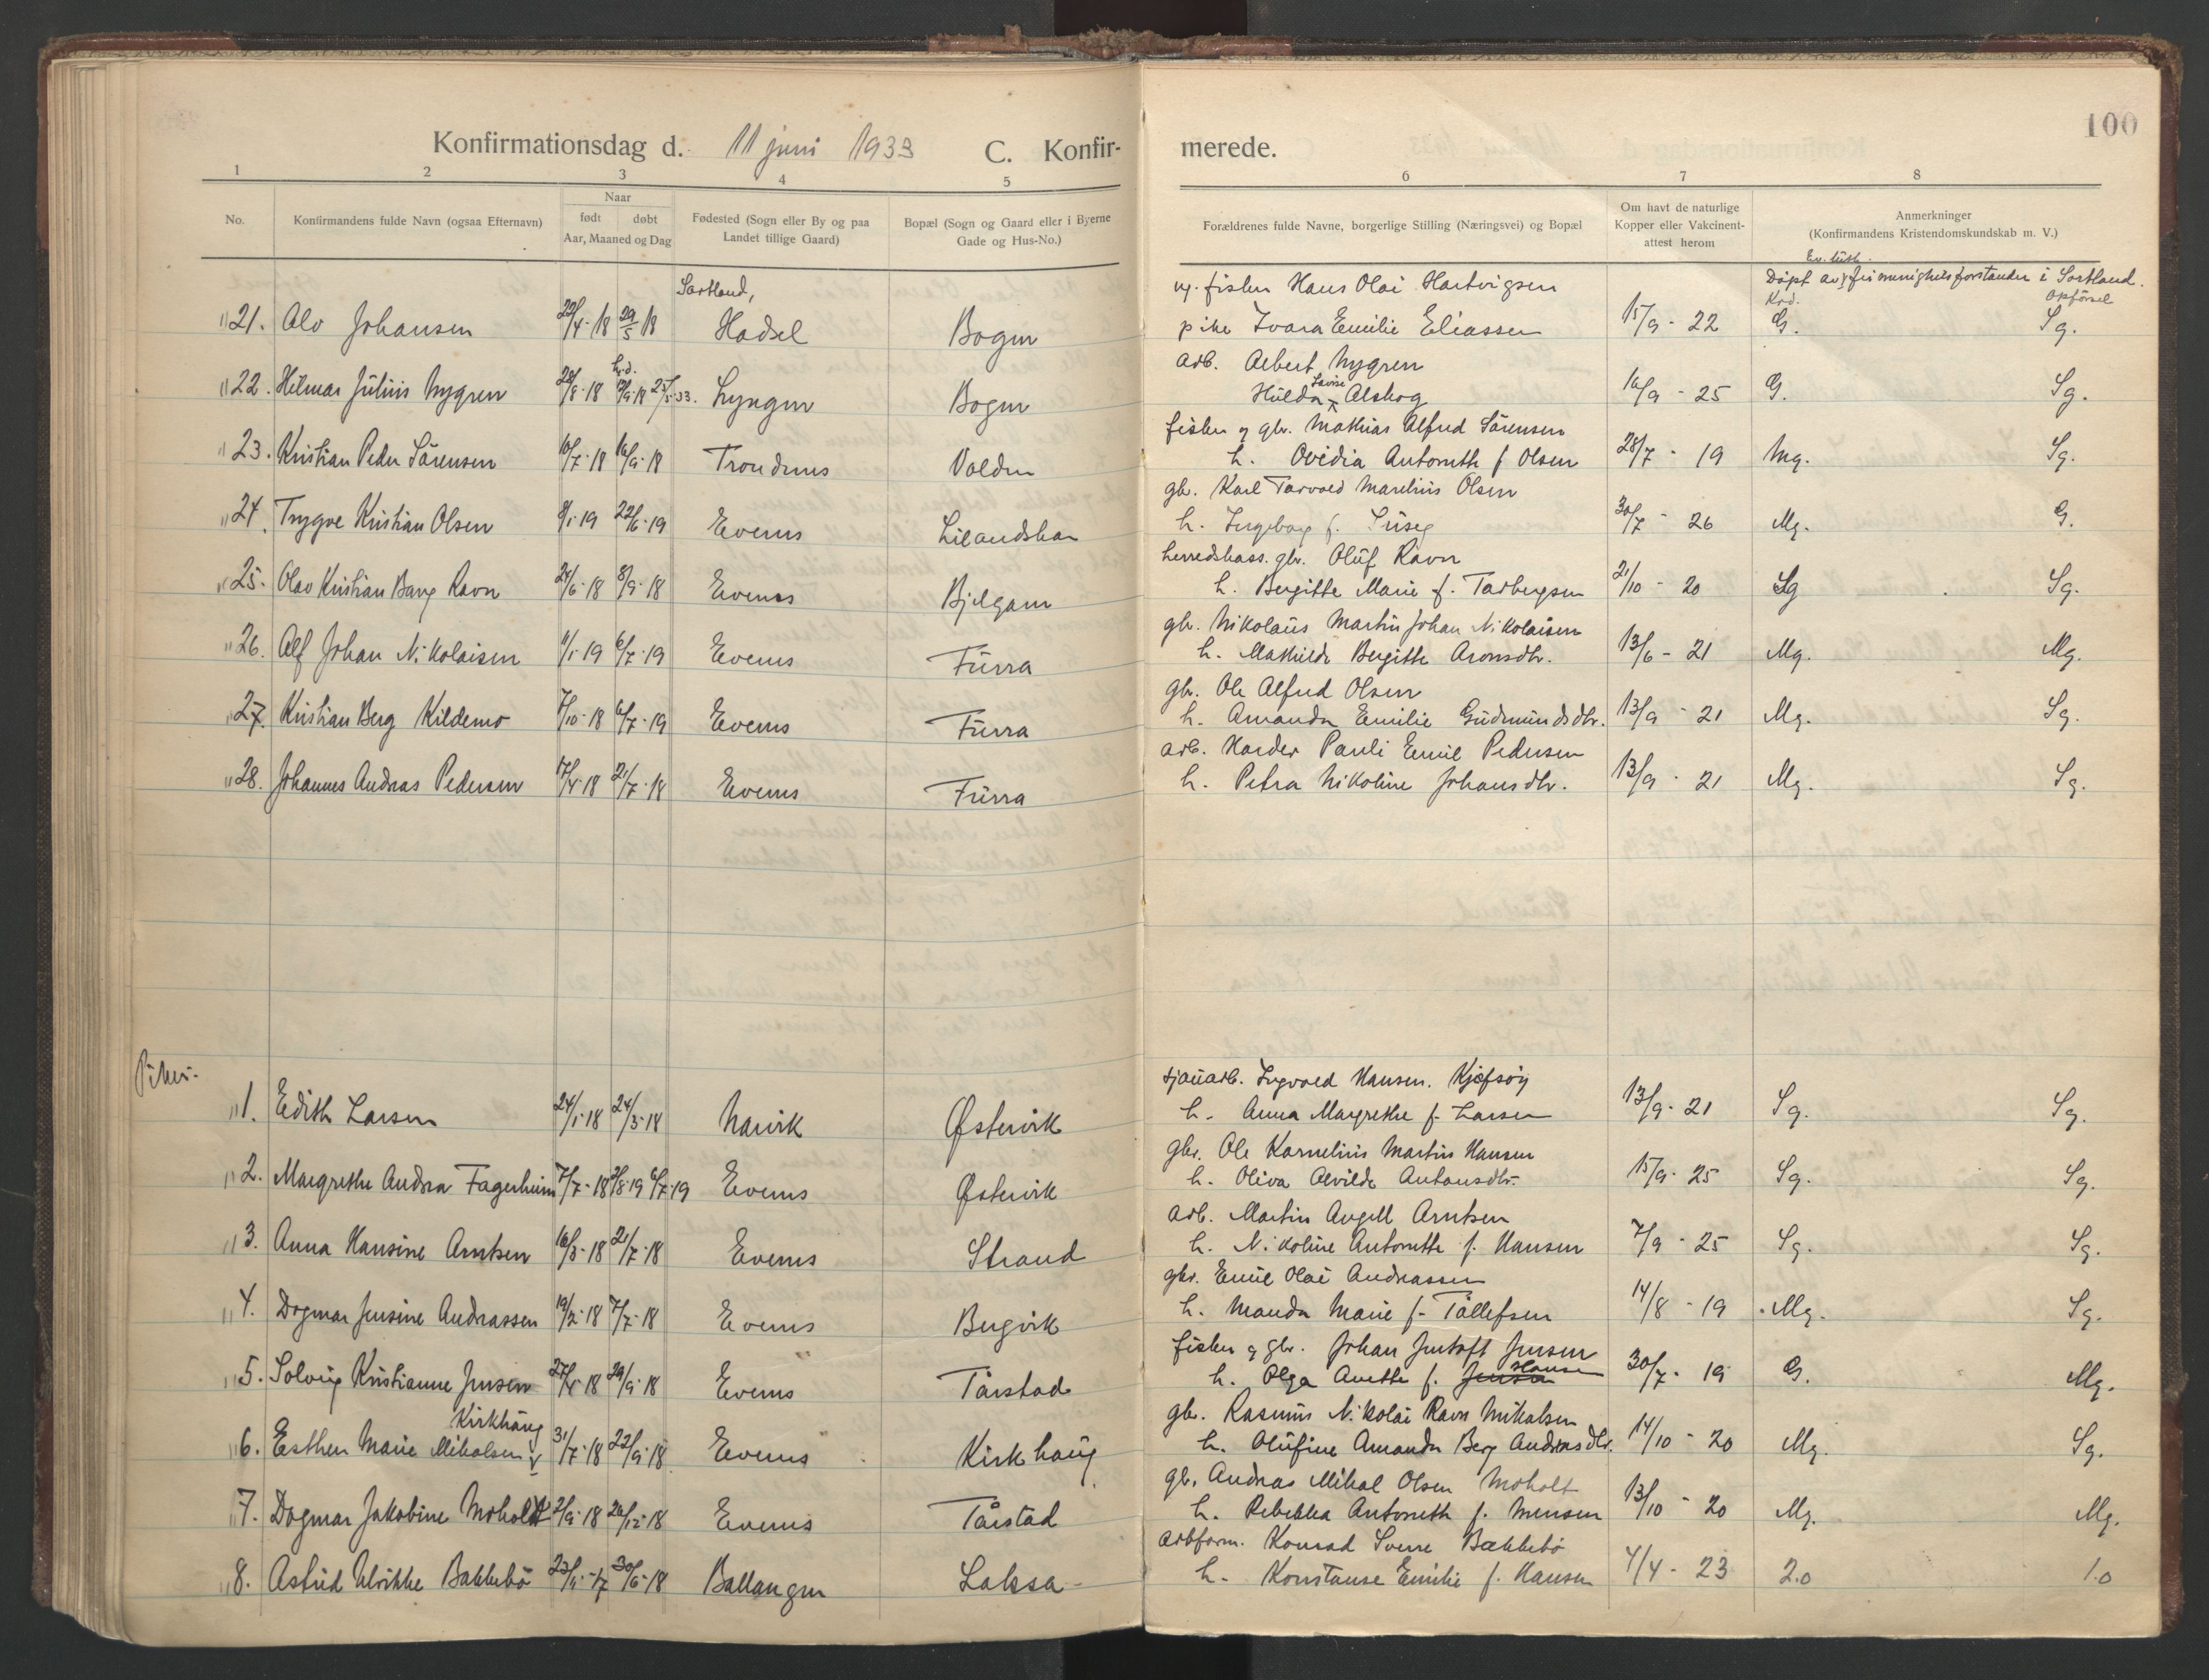 100
Konfirmationsdag d. 11 juni 1933 C. Konfir- merede.
1 2 3 4 5 6 7 8
No.
Konfirmandens fulde Navn (ogsaa Efternavn)
Naar
født døbt
Aar, Maaned og Dag
Fødested (Sogn eller By og paa
Landet tillige Gaard)
Bopæl (Sogn og Gaard eller i Byerne
Gade og Hus-No.)
Forældrenes fulde Navne, borgerlige Stilling (Næringsvei) og Bopæl
Om havt de naturlige
Kopper eller Vakcinent-
attest herom
Anmerkninger
(Konfirmandens Kristendomskundskab m. V.)
Ev. luth.
Sortland, ug. fisker Hans Olai Hartvigsen Döpt av frimenighetsforstander i Sortland.
Krd. Opförsel
21. Alv Johansen 22/4-18 29/5 18 Hadsel Bogen pike Ivara Emilie Eliassen 15/9-22 G. Sg.
arb. Albert Nygren
22. Hilmar Julius Nygren 28/8-18 25/5-33. Lyngen Bogen Hulda Lavise Alskog 16/9-25 G. Sg.
fisker og gbr. Mathias Alfred Sörensen
23. Kristian Peder Sörensen 10/7-18 16/9-18 Trondenes Volden h. Ovidia Antonette f. Olsen 28/7-19 Mg. Sg.
gbr. Karl Torvald Marelius Olsen
24. Trygve Kristian Olsen 8/1-19 22/6-19 Evenes Lilandskar h. Ingeborg f. 30/7-26 Mg. G.
herredskass. gbr. Oluf Ravn
25. Olav Kristian Bang Ravn 24/6-18 8/9-18 Evenes Bjelgam h. Bergitte Marie f. Torbergsen 21/10-20 Sg Sg.
gbr. Nikolaus Martin Johan Nikolaisen
26. Alf Johan Nikolaisen 11/1-19 6/7-19 Evenes Furra h. Mathilde Bergitte Aronsdtr. 13/6-21 Mg. Mg.
gbr. Ole Alfred Olsen
27. Kristian Berg Kildemo 7/10-18 6/7-19 Evenes Furra h. Amanda Emilie Gudmundsdtr. 13/9-21 Mg. Sg.
arb. Harder Pauli Emil Pedersen
28. Johannes Andreas Pedersen 17/4-18 21/7-18 Evenes Furra h. Petra Nikoline Johansdtr. 13/9-21 Mg. Sg.
Piker.
Ingvald Hansen. Kjefsöy
1. Edith Larsen 24/1-18 24/3-18 Narvik Østervik h. Anna Margrethe f. Larsen 13/9-21 Sg. Sg.
gbr. Ole Kornelius Martin Hansen
2. Margrethe Andrea Fagerheim 7/7-18 6/7-19 Evenes Østervik h. Oliva Alvilde Antonsdtr. 15/9-25 Sg. Sg.
arb. Martin Angell Arntsen
3. Anna Hansine Arntsen 16/3-18 21/7-18 Evenes Strand h. Nikoline Antonette f. Hansen 7/9-25 Sg. Sg.
gbr. Emil Olai Andreassen
4. Dagmar Jensine Andreassen 19/2-18 7/7-18 Evenes Bergvik h. Manda Marie f. Tollefsen 14/8-19 Mg. Sg.
fisker og gbr. Johan Jentoft Jensen
5. Solveig Kristianne Jensen 27/4-18 29/9-18 Evenes Tårstad h. Olga Anette f. Jensen Hansen 30/7-19 G. Mg.
Kirkhaug gbr. Rasmus Nikolai Ravn Mikalsen
6. Esther Marie Mikalsen 31/7-18 22/9-18 Evenes Kirkhaug h. Olufine Amanda Berg Andreasdtr. 14/10-20 Mg. Sg.
gbr. Andreas Mikal Olsen Moholt
7. Dagmar Jakobine Moholt 2/9-18 26/12-18 Evenes Tårstad h. Rebekka Antonette f. Mensen 13/10-20 Mg. Mg.
arbform. Konrad Sverre Bakkebö
8. Astrid Ulrikke Bakkebö 23/9-17 30/6-18 Ballangen Laksa h. Konstanse Emilie f. Hansen 4/4-23 2.0 1.0